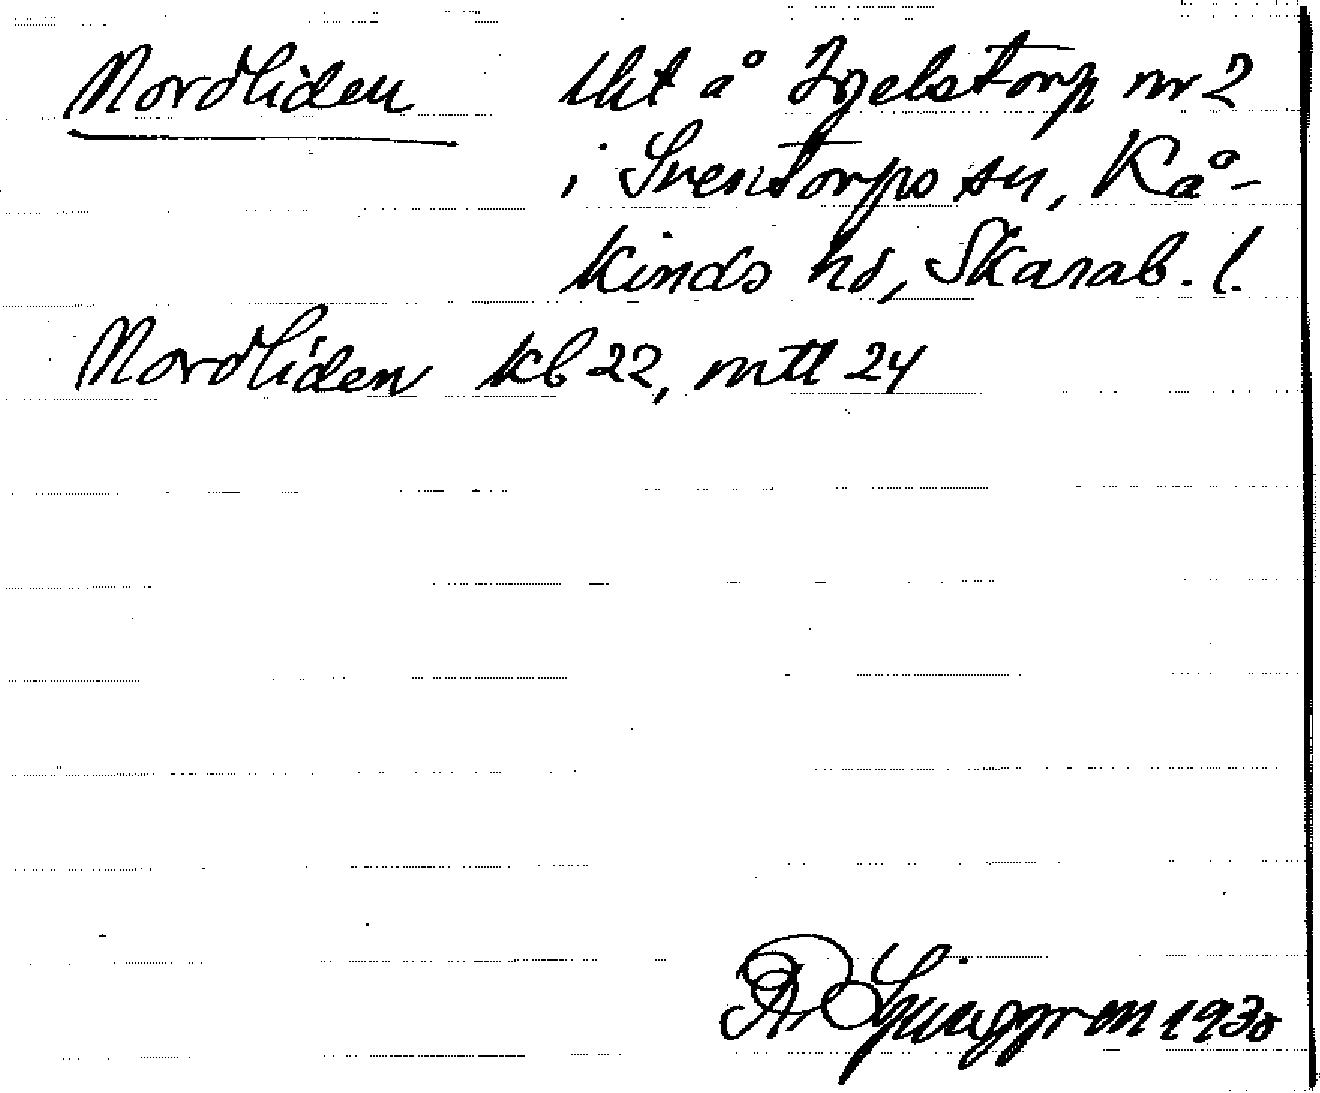 Nordliden lht å Igelstorp nr 2
i Sventorps sn, Kå-
kinds hd, Skarab. l.
Nordliden kb 22, mtl 24
Ljunggren 1930